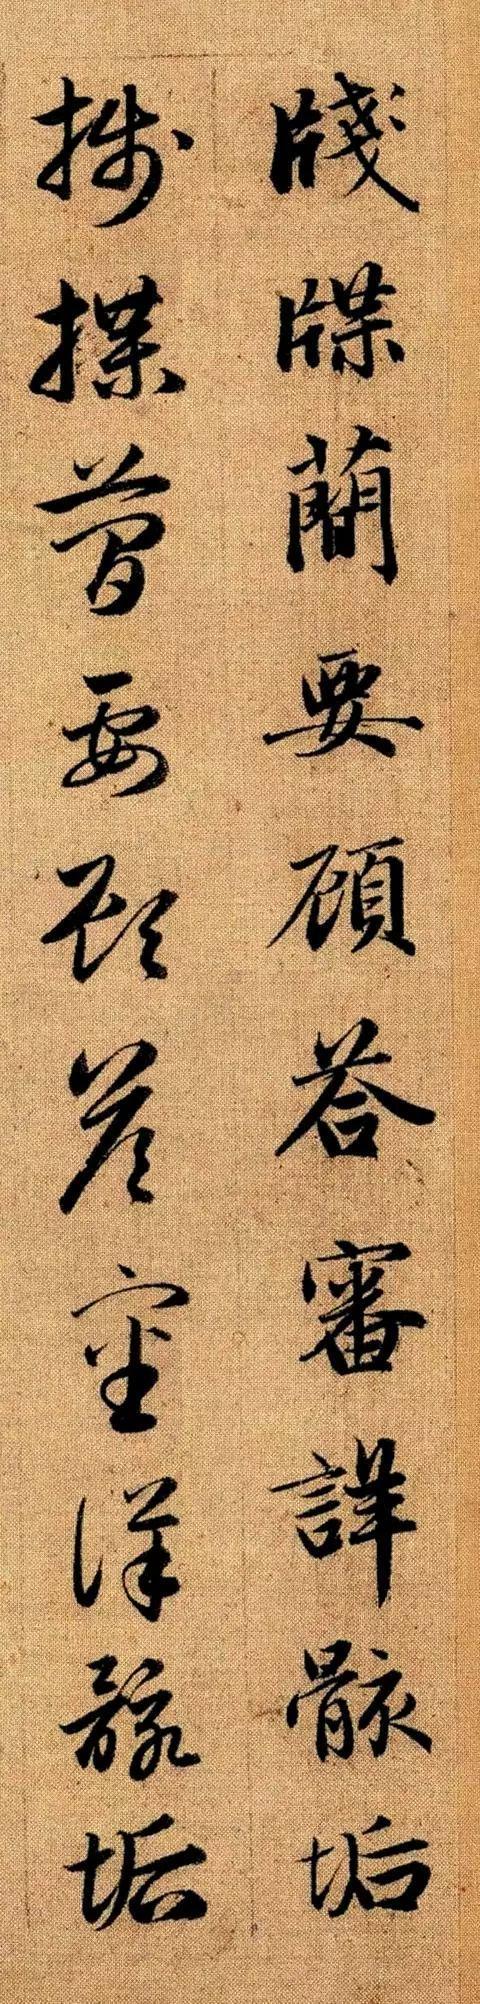 牋牒蕑要顾荅審詳骸垢
牋牒蕑要顾荅審詳骸垢